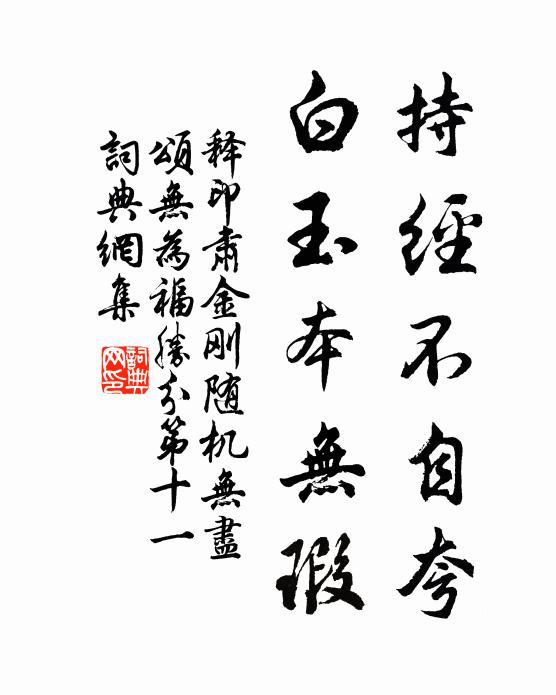 持經不自夸
白玉本無瑕
释印肅金刚随机無盡
頌無為福勝分第十一
詞典網集
詞典網印